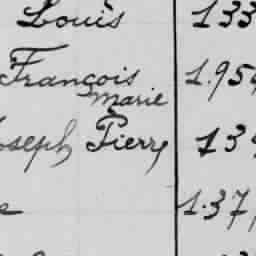 Louis 133
François 1.954
Marie
oseph Pierre 134
e 1.37